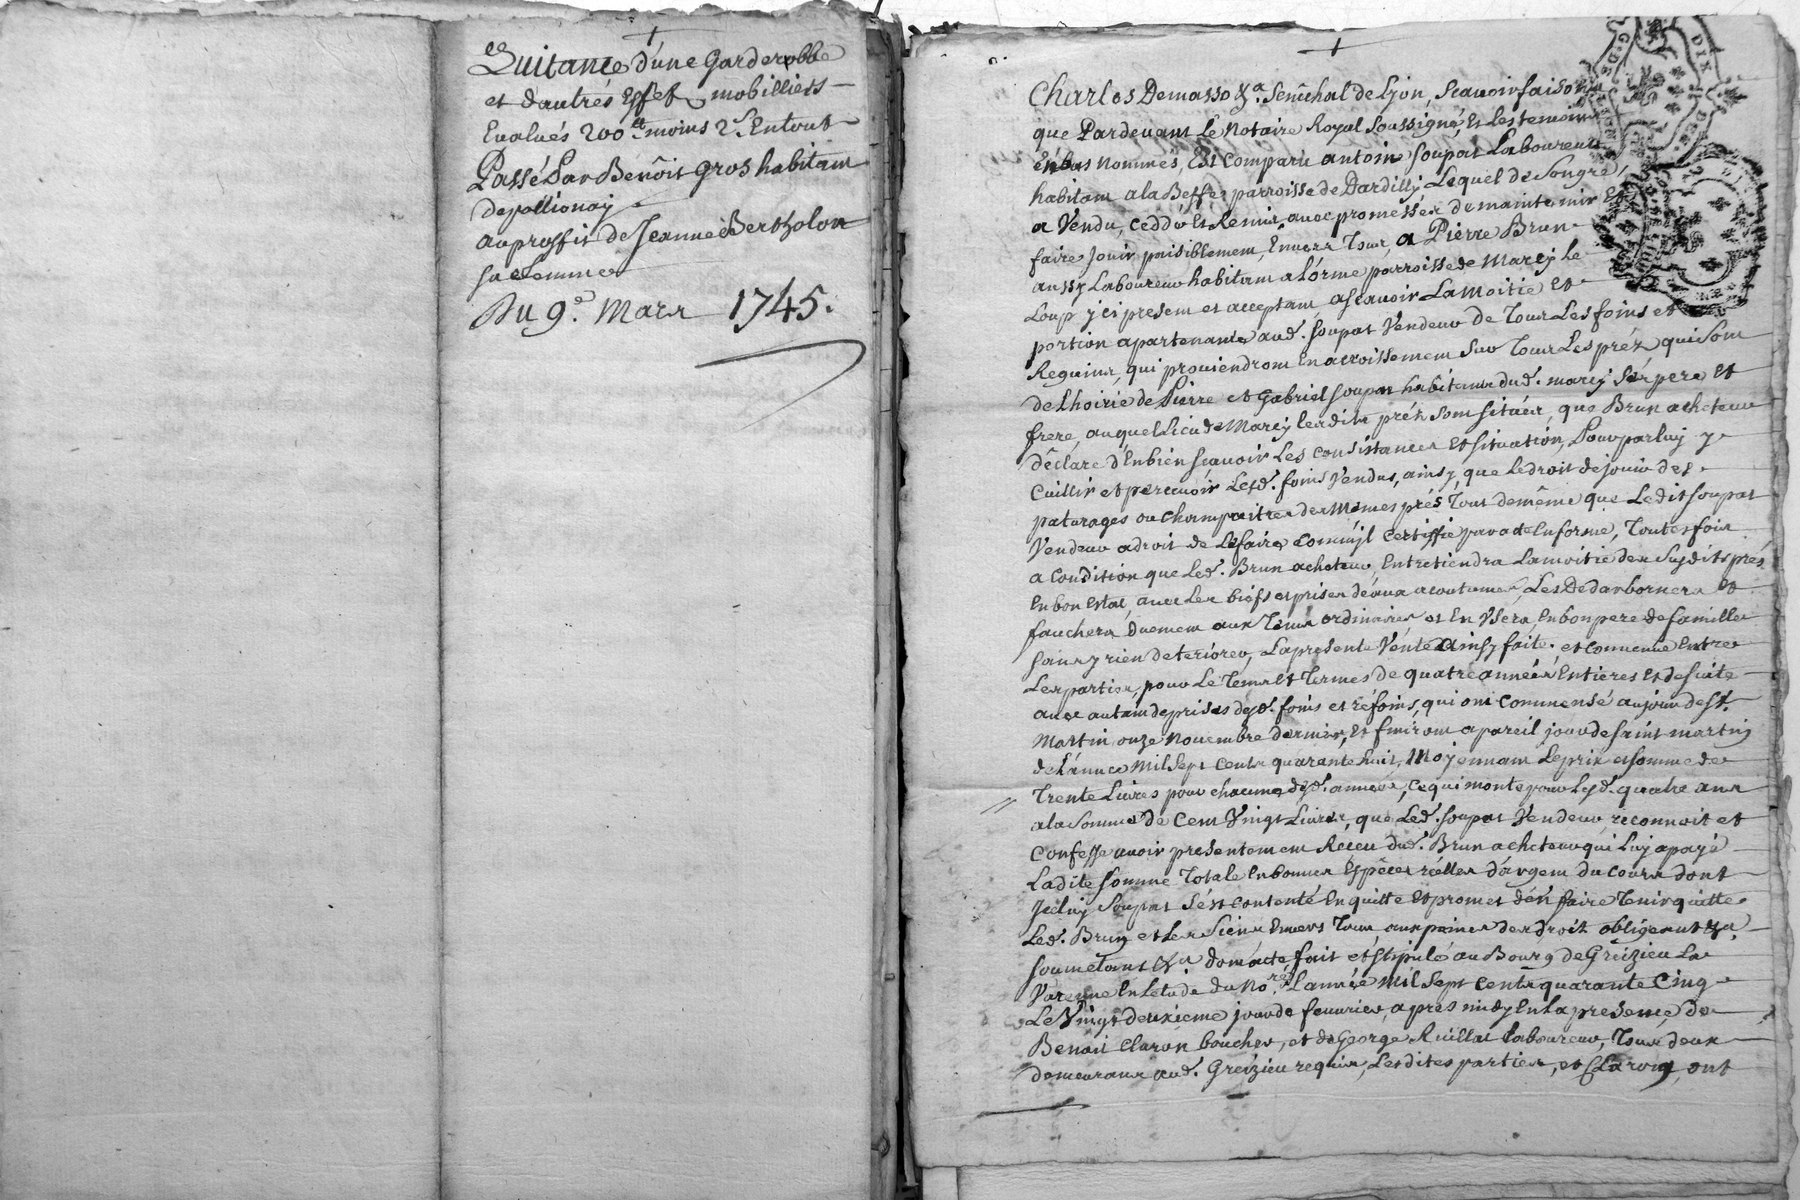 Quitance d'une Garderobbe
et d'autres Effets mobilliers
Evalués 200lt moins 2s En tout
Passé Par Benoit Gros habitant
de pollionay
au proffit de Jeanne Bertholon
sa femme
Du 9e. Mars 1745.
Charles Demasso &a. Senêchal de Lyon, scavoir faisons
que Pardevant Le Notaire Royal soussigné, Et Les temoins
En bas nommés, Est comparu antoine soupat Laboureur
habitant a la Beffe parroisse de Dardilly Lequel de son gré
a Vendu, ceddé Et Remis, avec promesses de maintenir Et
faire jouir paisiblement, Envers tous, a Pierre Brun
aussy Laboureur habitant a l'orme parroisse de Marcy Le
Loup yci present et acceptant ascavoir La moitié et
portion apartenante aud. soupat Vendeur de tous Les foins et
Reguins, qui proviendront En accroissement sur tous Les préz qui sont
de L'hoirie de Pierre et Gabriel soupat habitans dud. marcy ses pere et
frere, auquel Lieu de Marcy Lesdits préz sont situés, que Brun acheteur
déclare d'En bien scavoir Les consistances Et situation, Pour par luy y
Cuillir et percevoir Lesd. foins Vendus, ainsy que Le droit de jouir des
paturages ou champaitres des mêmes prés tout de même que Ledit soupat
Vendeur a droit de Le faire comm'il certiffie par acte En forme, toutes fois
a Condition que Led. Brun acheteur, Entretiendra La moitié des susdits prés
En bon Estat, avec Les biefs et prises d'eaux acoutumés, Les Dedarbonnera Et
fauchera Duement aux tems ordinaires et En Usera En bon pere de famille
sans y rien deteriorer, La presente Vente Ainsy faite, et convenue Entre
Les parties, pour Le tems Et termes de quatre années Entieres Et de suite
avec autant de prises desd. foins et réfoins, qui ont commensé au jour de St.
Martin onze Novembre dernier, Et finiront a pareil jour de saint martin
de L'année Mil sept cents quarante huit, Moyennant Le prix et somme de
Trente Livres pour chacune desd. années, ce qui monte pour Lesd. quatre ans
a la somme de Cent Vingt Livres, que Led. soupat Vendeur, reconnoit et
Confesse avoir presentement Receu dud. Brun acheteur qui Luy a payé
Ladite somme totale En bonnes Espèces réelles d'argent du cours dont
Jceluy soupat s'est contenté En quitte Et promet d'en faire tenir quitte
Led. Brun et Les siens Envers tous aux peines de droit obligeant &a
soumetant &a dont acte fait et stipulé au Bourg de Greizieu La
Varenne En L'etude du Nore. L'année Mil sept cents quarante Cinq
Le Vingt deuxieme jour de fevrier apres midy En La presence de
Benoit Claron boucher, et de George Ruillat Laboureur, tous deux
demeurans aud. Greizieu requis, Lesdites parties, et Claron, ont